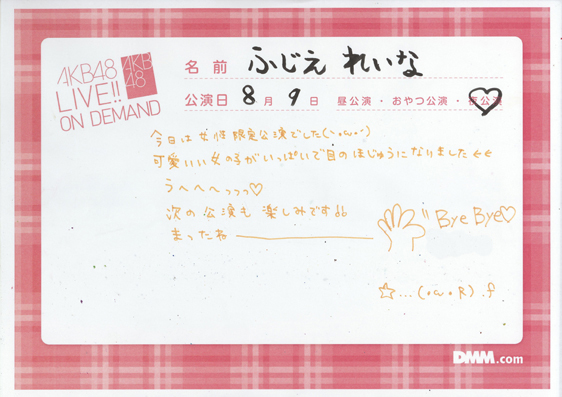 AKB48
LIVE!!
ON DEMAND
AKB
48
名前 ふじえ れいな
公演日 8月 9日 昼公演・おやつ公演・夜公演
今日は女性限定公演でした(`・ω・´)
可愛いい女の子がいっぱいで目のほじゅうになりました<<
うへへへっっっ♡
次の公演も楽しみです♪♪
まったねー
Bye Bye♡
☆...(・ω・R).f
DMM.com